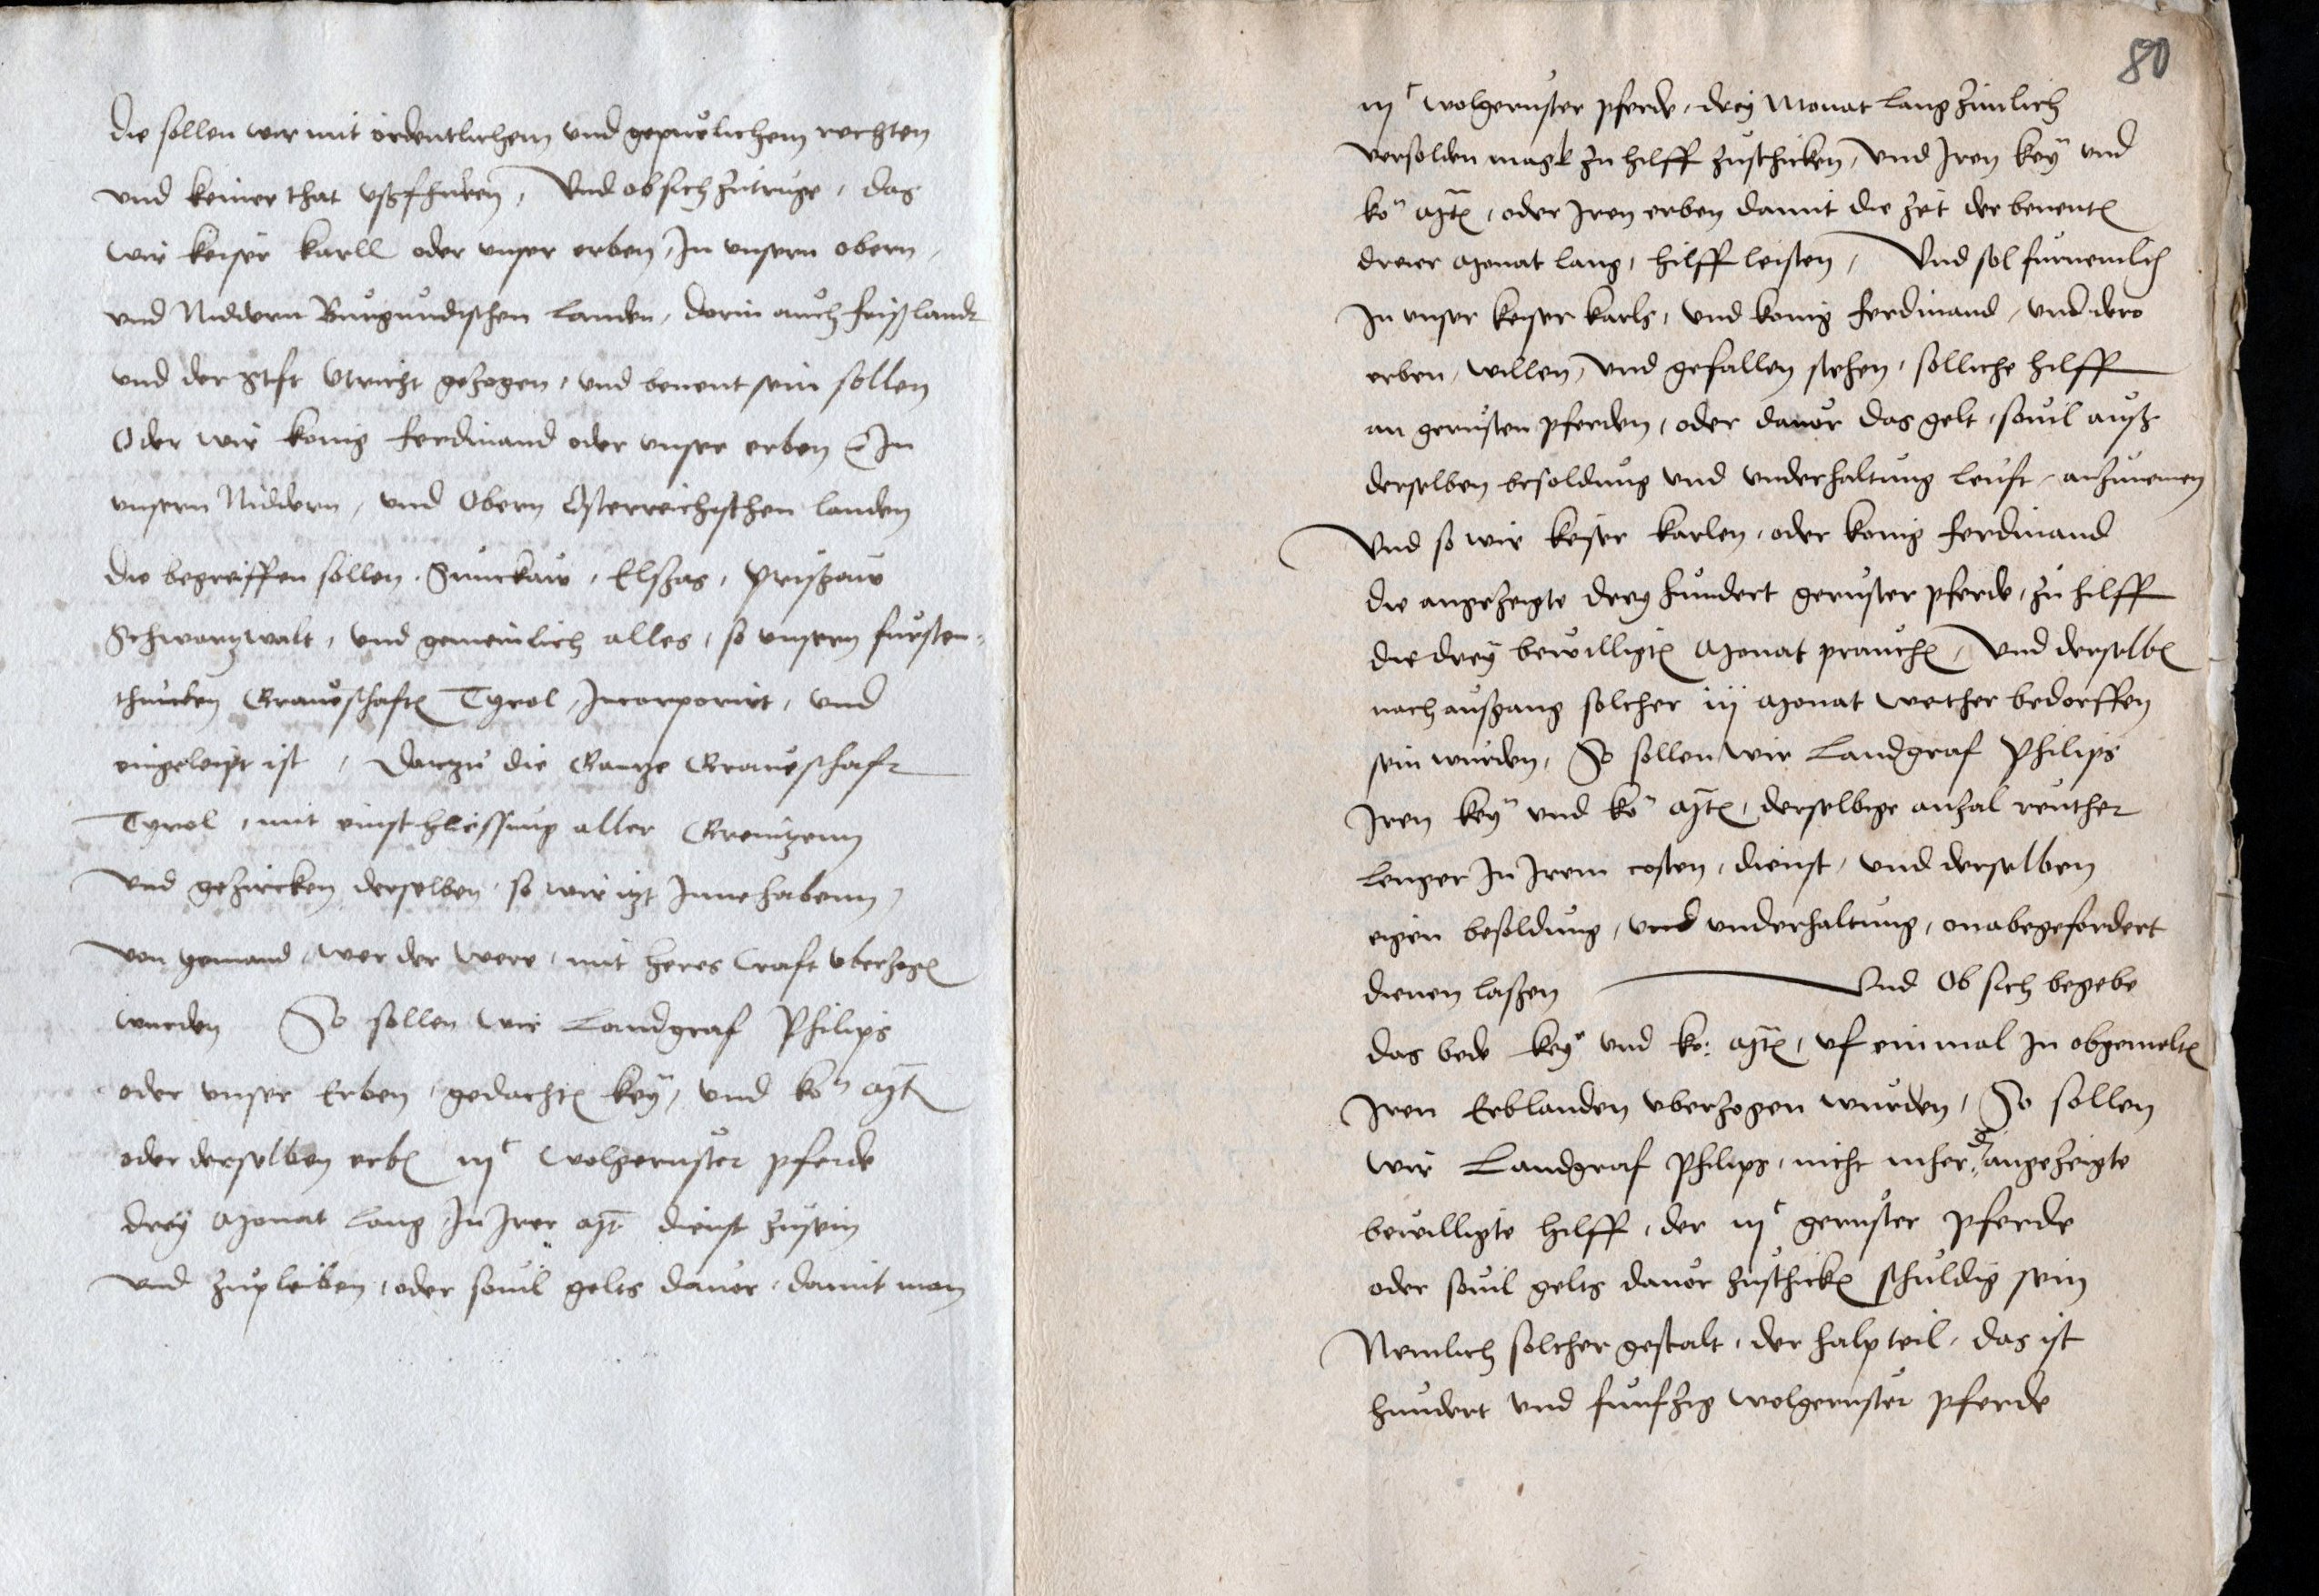 die sollen wir mit ordentlichem und gepurlichem rechten
und keiner that ußfhuren, Und ob sich zutruge, das
wir keiser Karll oder unser erben, In unsern obern,
und Niddern Burgundischen Landen, dorin auch frißlandt
und der Stift Utricht gezogen, und benent sein sollen
Oder wir konig Ferdinand oder unser erben In
unsern Niddern, und Obern Osterreichischen landen
die begreiffen sollen, Sunckaw, Elsßas, Prißgaw
Schwartzwalt, und gemeinlich alles, so unsern fursten-
thumben Graveschaften Tyrol, Incorporirt, und
eingeleipt ist, Dartzu die Gantze Graveschaft
Tyrol, mit einschliessung aller Grenitzenn
und gezircken derselben, so wir itzt Innehabenn,
von yemand, wer der were, mit heres craft uberzogen
wurden So sollen wir Landgraf Philips
oder unser Erben, gedachten key, und ko n Mt
oder derselben erben iij c wolgeruster pferde
drey Monat lang, In Irer Mt dienst zusein
und zupleiben, oder sovil gelts davor, damit man
80
iij c wolgeruster pferde, drey Monat lang zimlich
versolden mag zu hilff zuschicken, und Iren key n und
ko n Mten, oder Iren erben damit die zeit der benenten
dreier Monat lang, hilff leisten, Und sol furnemlich
In unser keiser Karls, und konig Ferdinand, und dero
erben, willen, und gefallen stehen, solliche hilff
an gerusten pferden, oder davor das gelt, sovil auß
derselben besoldung und underhaltung leuft, anzunemen
Und so wir keiser Karlen, oder konig Ferdinand
die angezeigte drey hundert geruster pferde, zu hilff
die drey bewilligten Monat prauchen, Und derselben
nach außgang solcher iij Monat weither bedorffen
sein wurden, So sollen wir Landgraf Philips
Iren key n und ko n Mten, derselbige anzal reuther
lenger In Irem costen, dienst, und derselben
eigen besoldung, und underhaltung, onabegefordert
dienen laßen Und Ob sich begebe
das bede key e und ko: Mten, uf ein mal In obgemelten
Iren Erblanden uberzogen wurden, So sollen
wir Landgraf Philips, nicht mher, angezeigte
bewilligte hilff, der iij c geruster pferde
oder sovil gelts davor zuschicken schuldig sein
Nemlich solcher gestalt, der halp teil, das ist
hundert und funfzig wolgeruster pferde